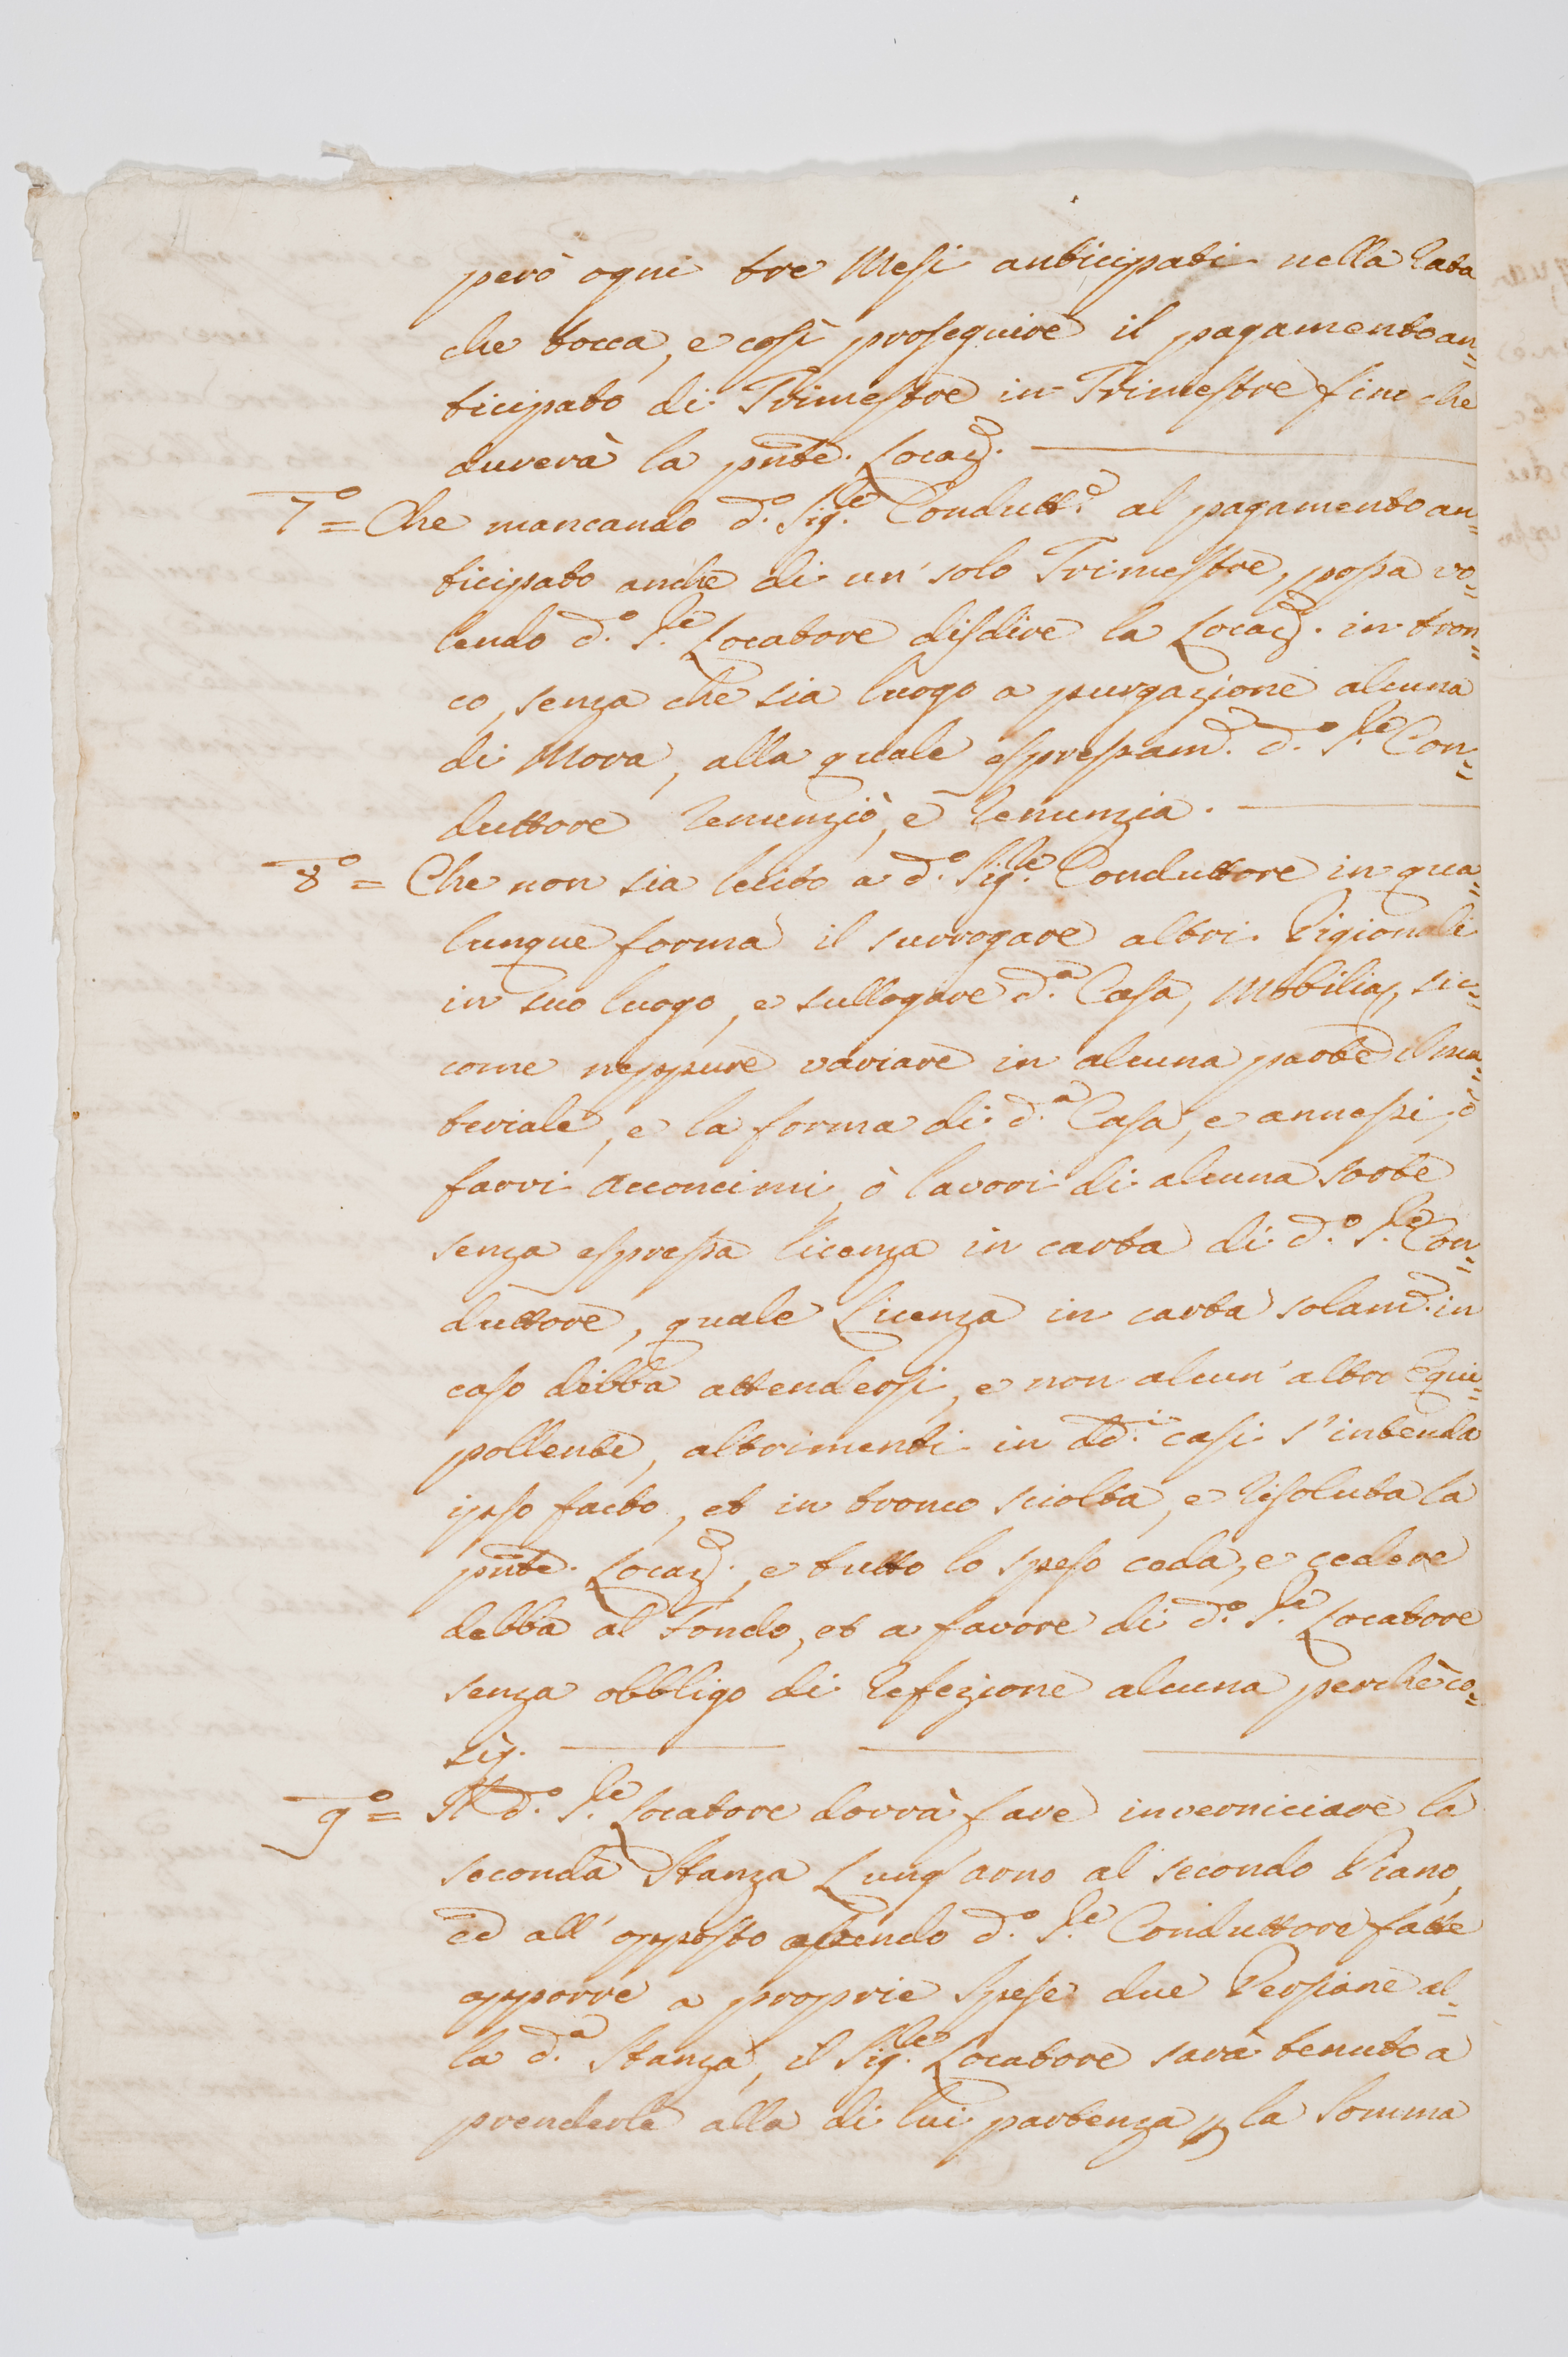 però ogni tre Mesi anticipati nella Rata
che tocca, e così proseguire il pagamento an=
ticipato di Trimestre in Trimestre fin che
durerà la pnte. Locaz.
7.° = Che mancando d.° Sig.re Condutt.e al pagamento an=
ticipato anche di un' solo Trimestre, possa vo=
lendo d.° S.re Locatore disdire la Locaz. in tron=
co, senza che sia luogo a purgazione alcuna
di Mora, alla quale espressam.e d.° S.re Con=
duttore renunziò, e renunzia.
8.° = Che non sia lecito a d.° Sig.re Conduttore in qua=
lunque forma il surrogare altri Pigionali
in suo luogo, e sullogare d.a Casa, Mobilia, sic=
come neppure variare in alcuna parte il ma=
teriale, e la forma di d.a Casa, e annessi, ò
farvi acconcimi, ò lavori di alcuna sorte
senza espressa licenza in carta di d.° S.re Con=
duttore, quale Licenza in carta solam.e in
caso debba attendersi, e non alcun' altro Equi=
pollente, altrimenti in dd.i casi s'intenda
ipso facto, et in tronco sciolta, e risoluta la
pnte. Locaz., e tutto lo speso ceda, e cedere
debba al Fondo, et a favore di d.° S.re Locatore
senza obbligo di refezione alcuna perchè co=
sì.
9.° = Il d.° S.re Locatore dovrà fare inverniciare la
seconda Stanza Lung'arno al secondo Piano,
ed all' opposto avendo d.° S.re Conduttore fatte
apporre a proprie spese due Persiane al=
la d.a Stanza, il Sig.re Locatore sarà tenuto a
prenderle alla di lui partenza p la somma